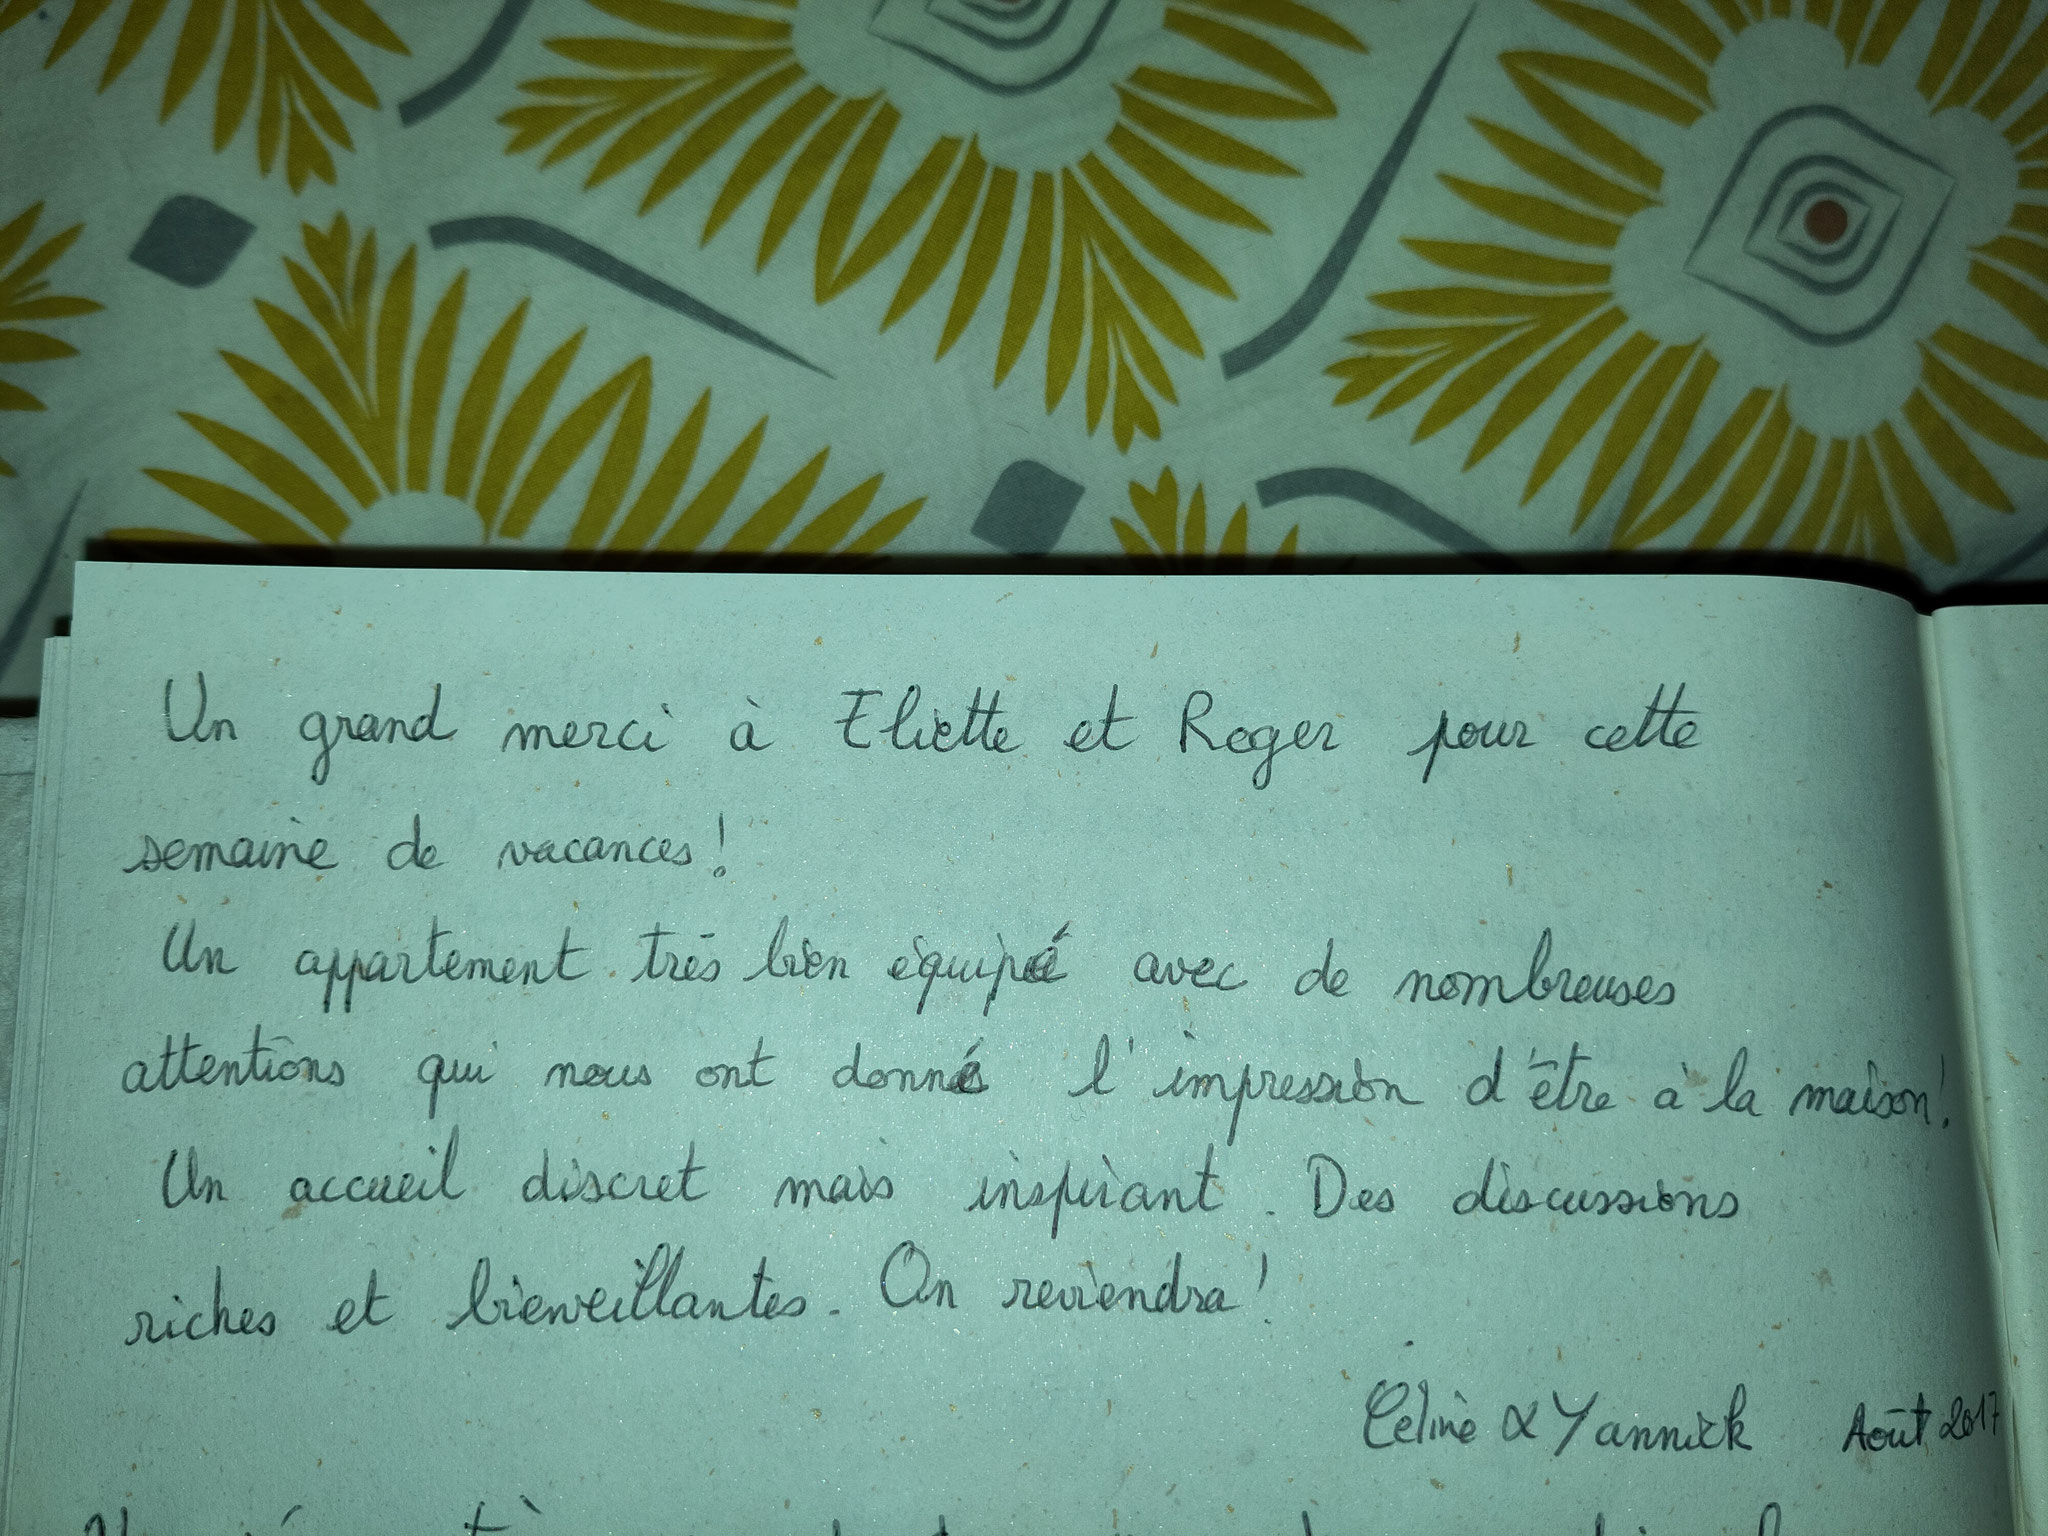 Un grand merci à Eliette et Roger pour cette
semaine de vacances !
Un appartement très bien équipé avec de nombreuses
attentions qui nous ont donné l'impression d'être à la maison !
Un accueil discret mais inspirant. Des discussions
riches et bienveillantes. On reviendra !
Céline & Yannick Août 2017